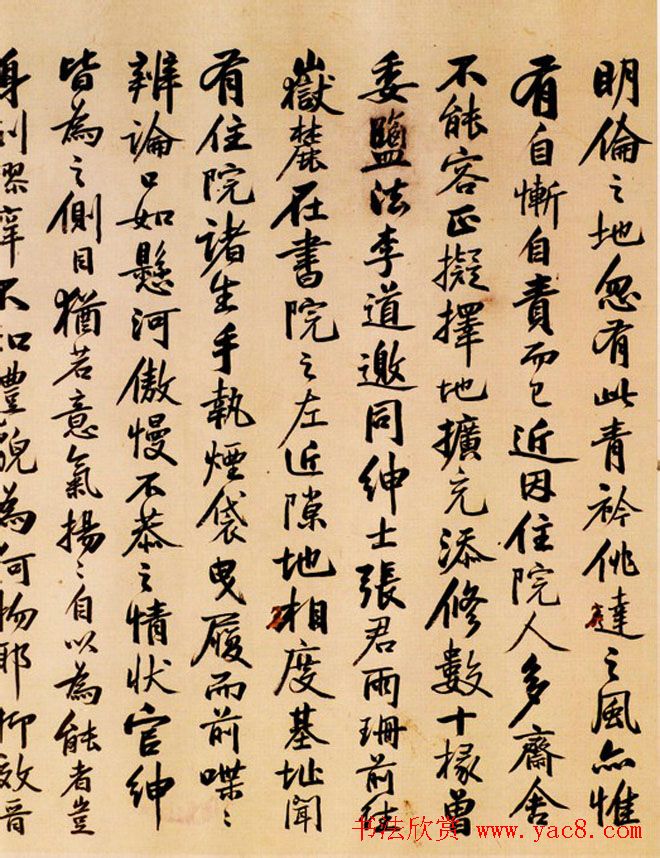 明倫之地忽有此青衿佻達之風亦惟
有自慚自責而已近因住院人多齋舍
不能容正擬擇地擴充添修數十椽曾
委鹽法李道邀同紳士張君雨珊前往
嶽麓在書院之左近隙地相度基址聞
有住院諸生手執煙袋曳履而前喋〻
辨論口如懸河傲慢不恭之情狀官紳
皆為之側目猶若意氣揚〻自以為能者豈
身列膠庠不知禮貌為何物耶抑效晋
书法欣赏 www.yac8.com